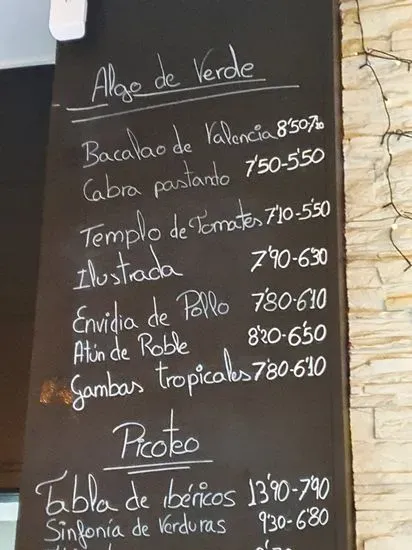 Algo de Verde
Bacalao de Valencia 8'50-7'20
Cabra pastando 7'50-5'50
Templo de Tomates 7'10-5'50
Ilustrada 7'90-6'30
Envidia de Pollo 7'80-6'10
Atún de Roble 8'20-6'50
Gambas tropicales 7'80-6'10
Picoteo
Tabla de ibéricos 13'90-7'90
Sinfonía de verduras 9'30-6'80